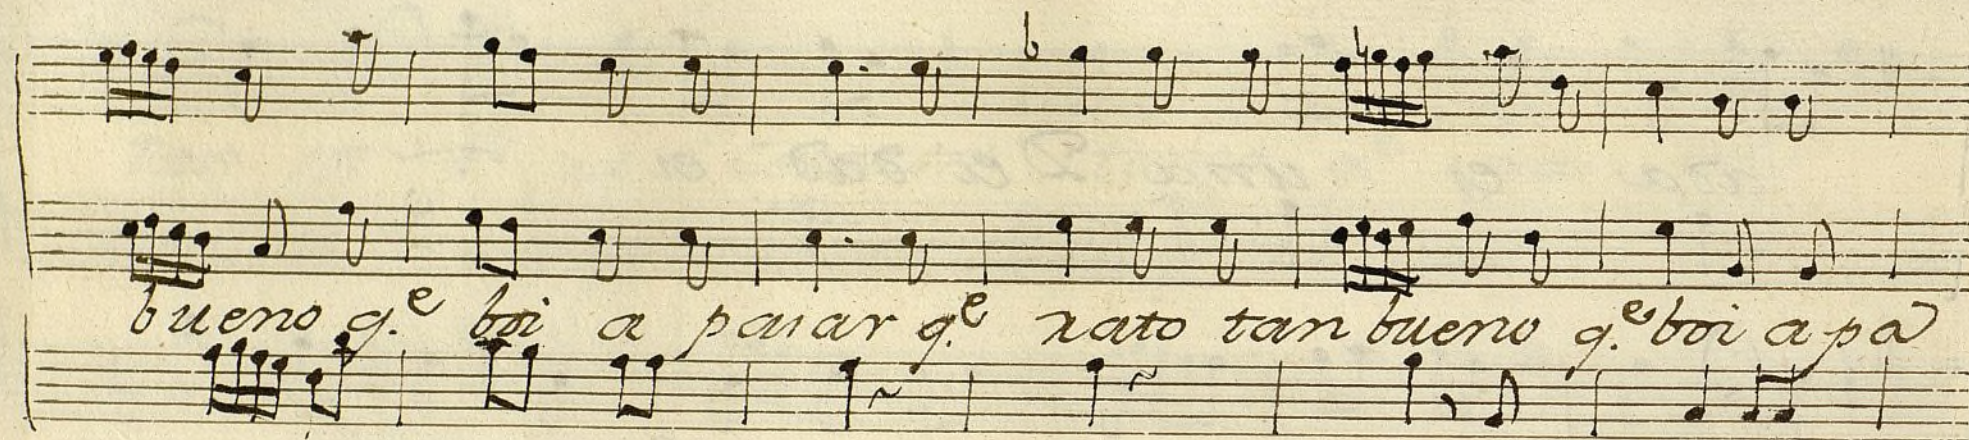 bueno q.e boi a pasar q.e rato tan bueno q.e boi a pa